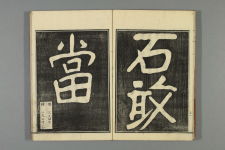 石敢
當